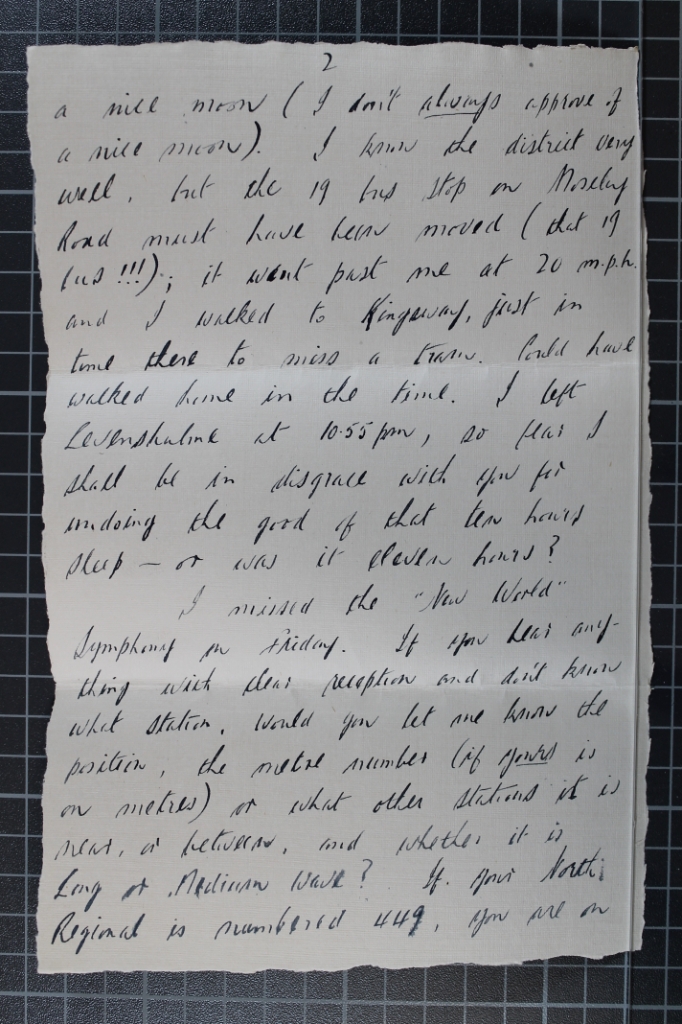 2
a nice moon (I don't always approve of
a nice moon). I know the district very
well, but the 19 bus stop on Moseley
Road must have been moved (that 19
bus !!!); it went past me at 20 m.p.h.
and I walked to Kingsway, just in
time there to miss a tram. Could have
walked home in the time. I left
Levenshulme at 10.55 pm, so fear I
shall be in disgrace with you for
undoing the good of that ten hours
sleep — or was it eleven hours?
I missed the "New World"
Symphony on Friday. If you hear any-
thing with clear reception and don't know
what station, would you let me know the
position, the metre number (if yours is
on metres) or what other stations it is
near, or between, and whether it is
Long or Medium Wave? If your North
Regional is numbered 449, you are on